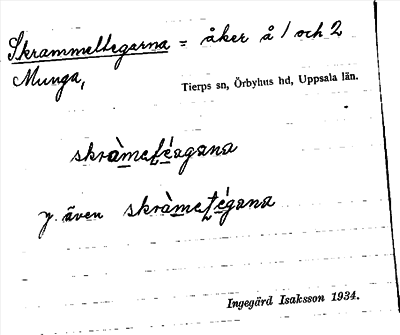 Skrammeltegarna = åker å 1 och 2
Munga,
Tierps sn, Örbyhus hd, Uppsala län.
skràmeteagana
y. även skràmetégana
Ingegärd Isaksson 1934.